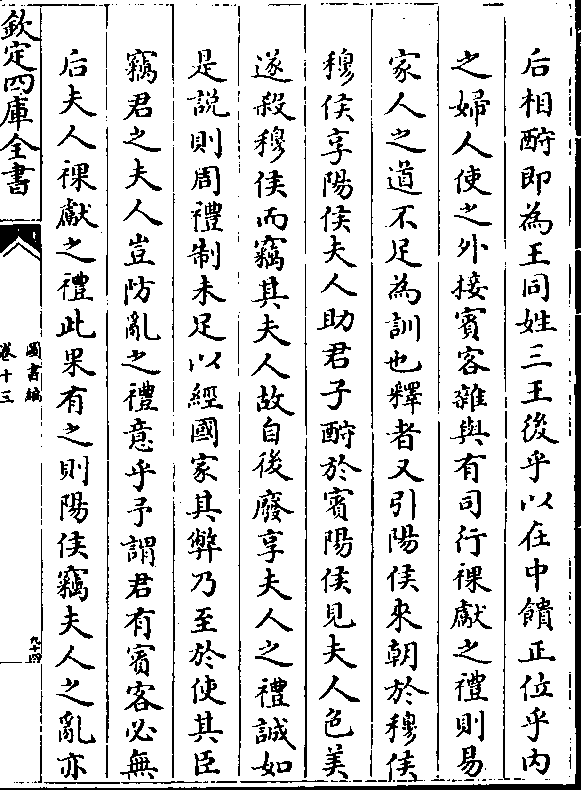 后相酧即為王同姓二王後乎以在中饋正位乎内
之婦人使之外接賓客雜與有司行祼獻之禮則易
家人之道不足為訓也釋者又引陽侯來朝於穆侯
穆侯享陽侯夫人助君子酧於賓陽侯見夫人色美
遂殺穆侯而竊其夫人故自後廢享夫人之禮誠如
是説則周禮制未足以經國家其弊乃至於使其臣
竊君之夫人豈防亂之禮意乎予謂君有賓客必無
后夫人祼獻之禮此果有之則陽侯竊夫人之亂亦
欽定四庫全書
圖書編
卷十三
九十四